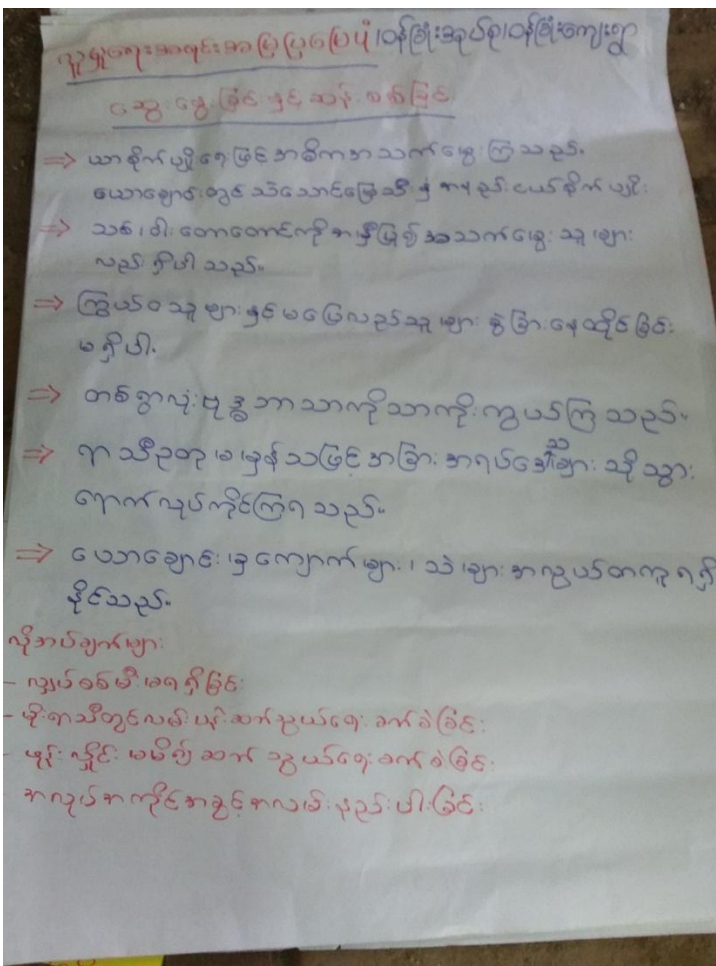 လူမှုရေးအရင်းအမြစ်ပြမြေပုံ၊ဝန်ခြုံးအုပ်စု၊ဝန်ခြုံးကျေးရွာ
ဆွေးနွေးခြင်းနှင့်ဆန်းစစ်ခြင်း
⇒ ယာစိုက်ပျိုးရေးဖြင့်အဓိကအသက်မွေးကြသည်။
ယောချောင်းတွင်သဲသောင်မြေသီးနှံအနည်းငယ်စိုက်ပျိုး
⇒ သစ်၊ဝါးတောတောင်ကိုအမှီပြု၍အသက်မွေးသူများ
လည်းရှိပါသည်။
⇒ ကြွယ်ဝသူများနှင့်မပြေလည်သူများခွဲခြားနေထိုင်ခြင်း
မရှိပါ။
⇒ တစ်ရွာလုံးဗုဒ္ဓဘာသာကိုသာကိုးကွယ်ကြသည်။
⇒ ရာသီဥတုမမှန်သဖြင့်အခြားအရပ်ဒေသများသို့သွား
ရောက်လုပ်ကိုင်ကြရသည်။
⇒ ယောချောင်းမှကျောက်များ၊သဲများအလွယ်တကူရရှိ
နိုင်သည်။
လိုအပ်ချက်များ
- လျှပ်စစ်မီးမရရှိခြင်း
- မိုးရာသီတွင်လမ်းပန်းဆက်သွယ်ရေးခက်ခဲခြင်း
- ဖုန်းလှိုင်းမမိ၍ဆက်သွယ်ရေးခက်ခဲခြင်း
အလုပ်အကိုင်အခွင့်အလမ်းနည်းပါးခြင်း